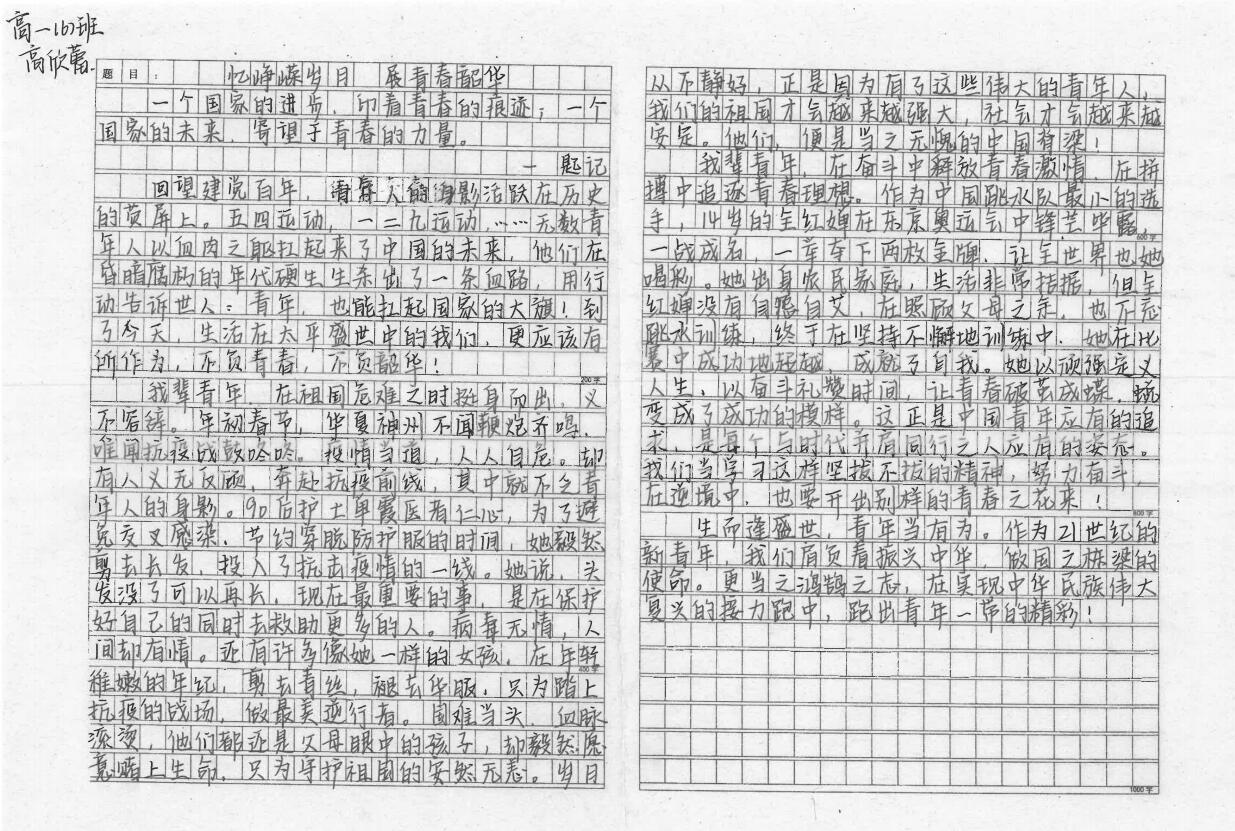 高一(6)班
高欣蕾
题目: 忆峥嵘岁月 展青春韶华
一个国家的进步,印着青春的痕迹;一个
国家的未来,寄望于青春的力量。
—题记
回望建党百年,青年人的身影活跃在历史
的荧屏上。五四运动,一二九运动……无数青
年人以血肉之躯扛起来了中国的未来,他们在
昏暗腐朽的年代硬生生杀出了一条血路,用行
动告诉世人:青年,也能扛起国家的大旗!到
了今天,生活在太平盛世中的我们,更应该有
所作为,不负青春,不负韶华!
200字
我辈青年,在祖国危难之时挺身而出,义
不容辞。年初春节,华夏神州不闻鞭炮齐鸣,
唯闻抗疫战鼓咚咚。疫情当道,人人自危。却
有人义无反顾,奔赴抗疫前线,其中就不乏青
年人的身影。90后护士单霞医者仁心,为了避
免交叉感染,节约穿脱防护服的时间,她毅然
剪去长发,投入了抗击疫情的一线。她说,头
发没了可以再长,现在最重要的事,是在保护
好自己的同时去救助更多的人。病毒无情,人
间却有情。还有许多像她一样的女孩,在年轻
400字
稚嫩的年纪,剪去青丝,褪去华服,只为踏上
抗疫的战场,做最美逆行者。国难当头,血脉
滚烫,他们都还是父母眼中的孩子,却毅然愿
意赌上生命,只为守护祖国的安然无恙。岁月
从不静好,正是因为有了这些伟大的青年人,
我们的祖国才会越来越强大,社会才会越来越
安定。他们,便是当之无愧的中国脊梁!
我辈青年,在奋斗中释放青春激情,在拼
搏中追逐青春理想。作为中国跳水队最小的选
手,14岁的全红婵在东京奥运会中锋芒毕露,
600字
一战成名,一举夺下两枚金牌,让全世界也她
喝彩。她出身农民家庭,生活非常拮据,但全
红婵没有自怨自艾,在照顾父母之余,也不忘
跳水训练,终于在坚持不懈地训练中,她在比
赛中成功地超越,成就了自我。她以顽强定义
人生,以奋斗礼赞时间,让青春破茧成蝶,蜕
变成了成功的模样。这正是中国青年应有的追
求,是每个与时代并肩同行之人应有的姿态。
我们当学习这样坚拔不拔的精神,努力奋斗,
在逆境中,也要开出别样的青春之花来!
800字
生而逢盛世,青年当有为。作为21世纪的
新青年,我们肩负着振兴中华,做国之栋梁的
使命。更当立鸿鹄之志,在实现中华民族伟大
复兴的接力跑中,跑出青年一带的精彩!
1000字